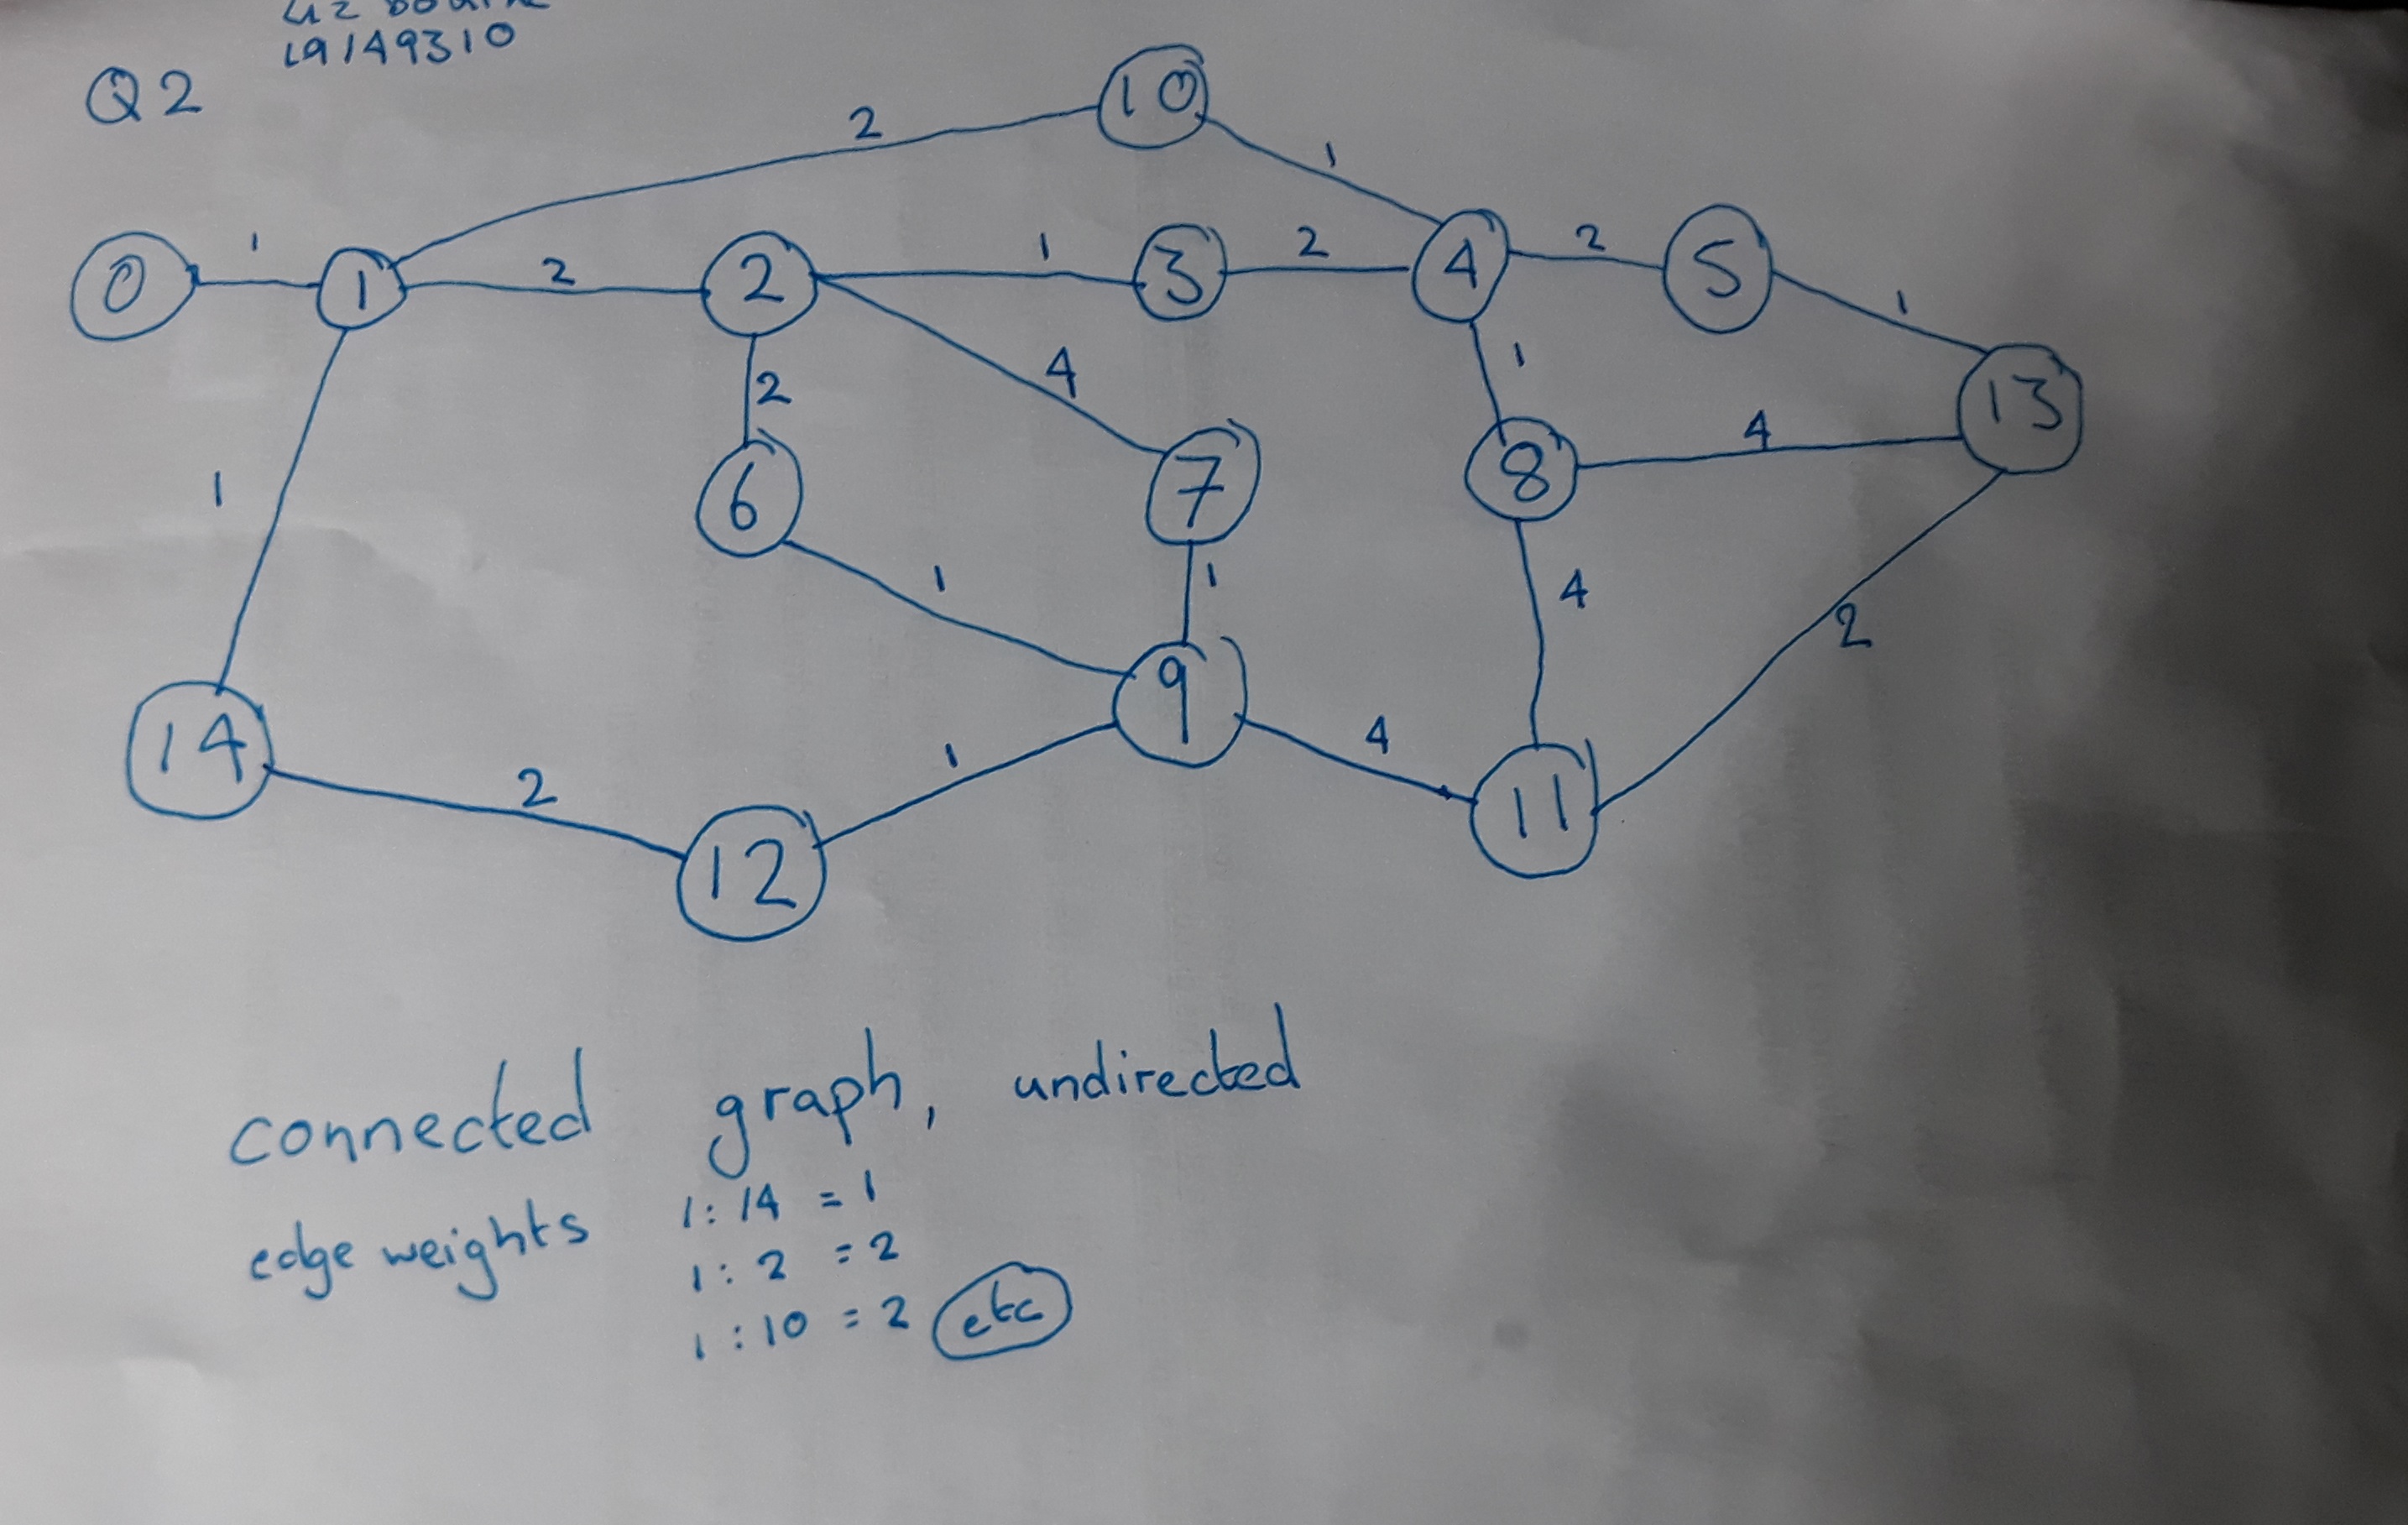 19149310
Q2
10
2
1
0
1
1
2
2
1
3
2
4
2
5
1
13
2
4
1
6
7
8
4
1
1
1
4
2
14
9
2
1
4
12
11
connected graph, undirected
edge weights 1:14 = 1
1:2 = 2
1:10 = 2 etc